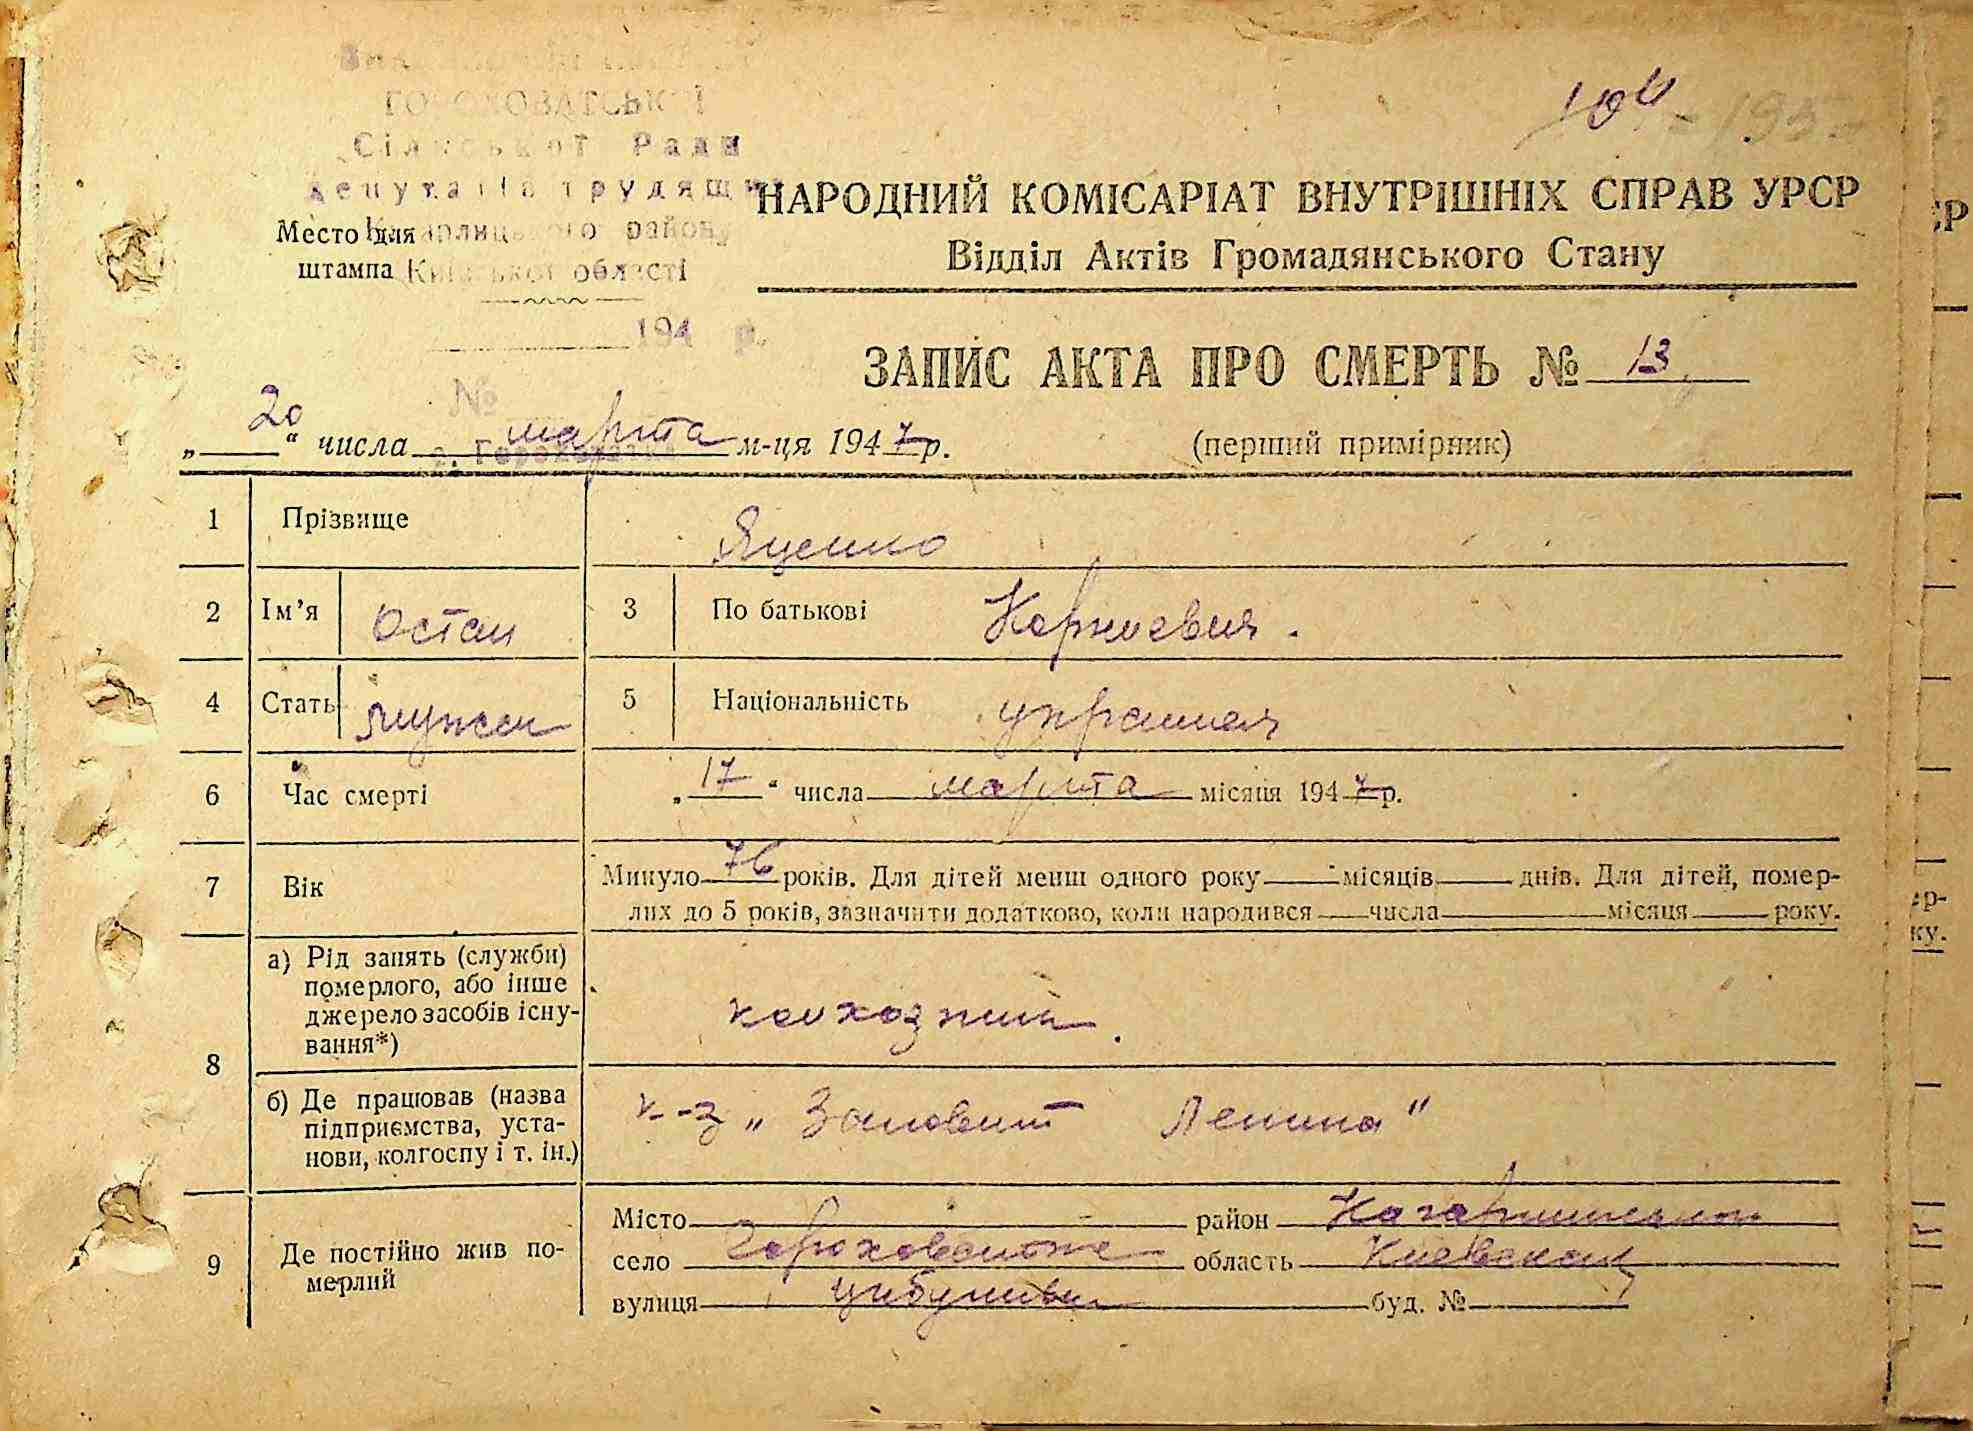 ГОРОХОВАТСЬКОЇ
Сільської Ради
депутатів трудящих
Кагарлицького району
Київської області
Место для
штампа
194 р.
№
с. Гороховатка
104
НАРОДНИЙ КОМІСАРІАТ ВНУТРІШНІХ СПРАВ УРСР
Відділ Актів Громадянського Стану
ЗАПИС АКТА ПРО СМЕРТЬ № 13
„20“ числа марта м-ця 1947 р.
(перший примірник)
1 Прізвище Яценко
2 Ім’я Остап 3 По батькові Корнеевич.
4 Стать мужск 5 Національність украинец
6 Час смерті „17“ числа марта місяця 1947 р.
7 Вік Минуло 76 років. Для дітей менш одного року місяців днів. Для дітей, помер-
лих до 5 років, зазначити додатково, коли народився числа місяця року.
8 а) Рід занять (служби)
померлого, або інше
джерело засобів існу-
вання*)
колхозник
б) Де працював (назва
підприємства, уста-
нови, колгоспу і т. ін.)
к-з „Заповит Ленина“
9 Де постійно жив по-
мерлий
Місто район Кагарлицкий
село область Киевская
вулиця буд. №